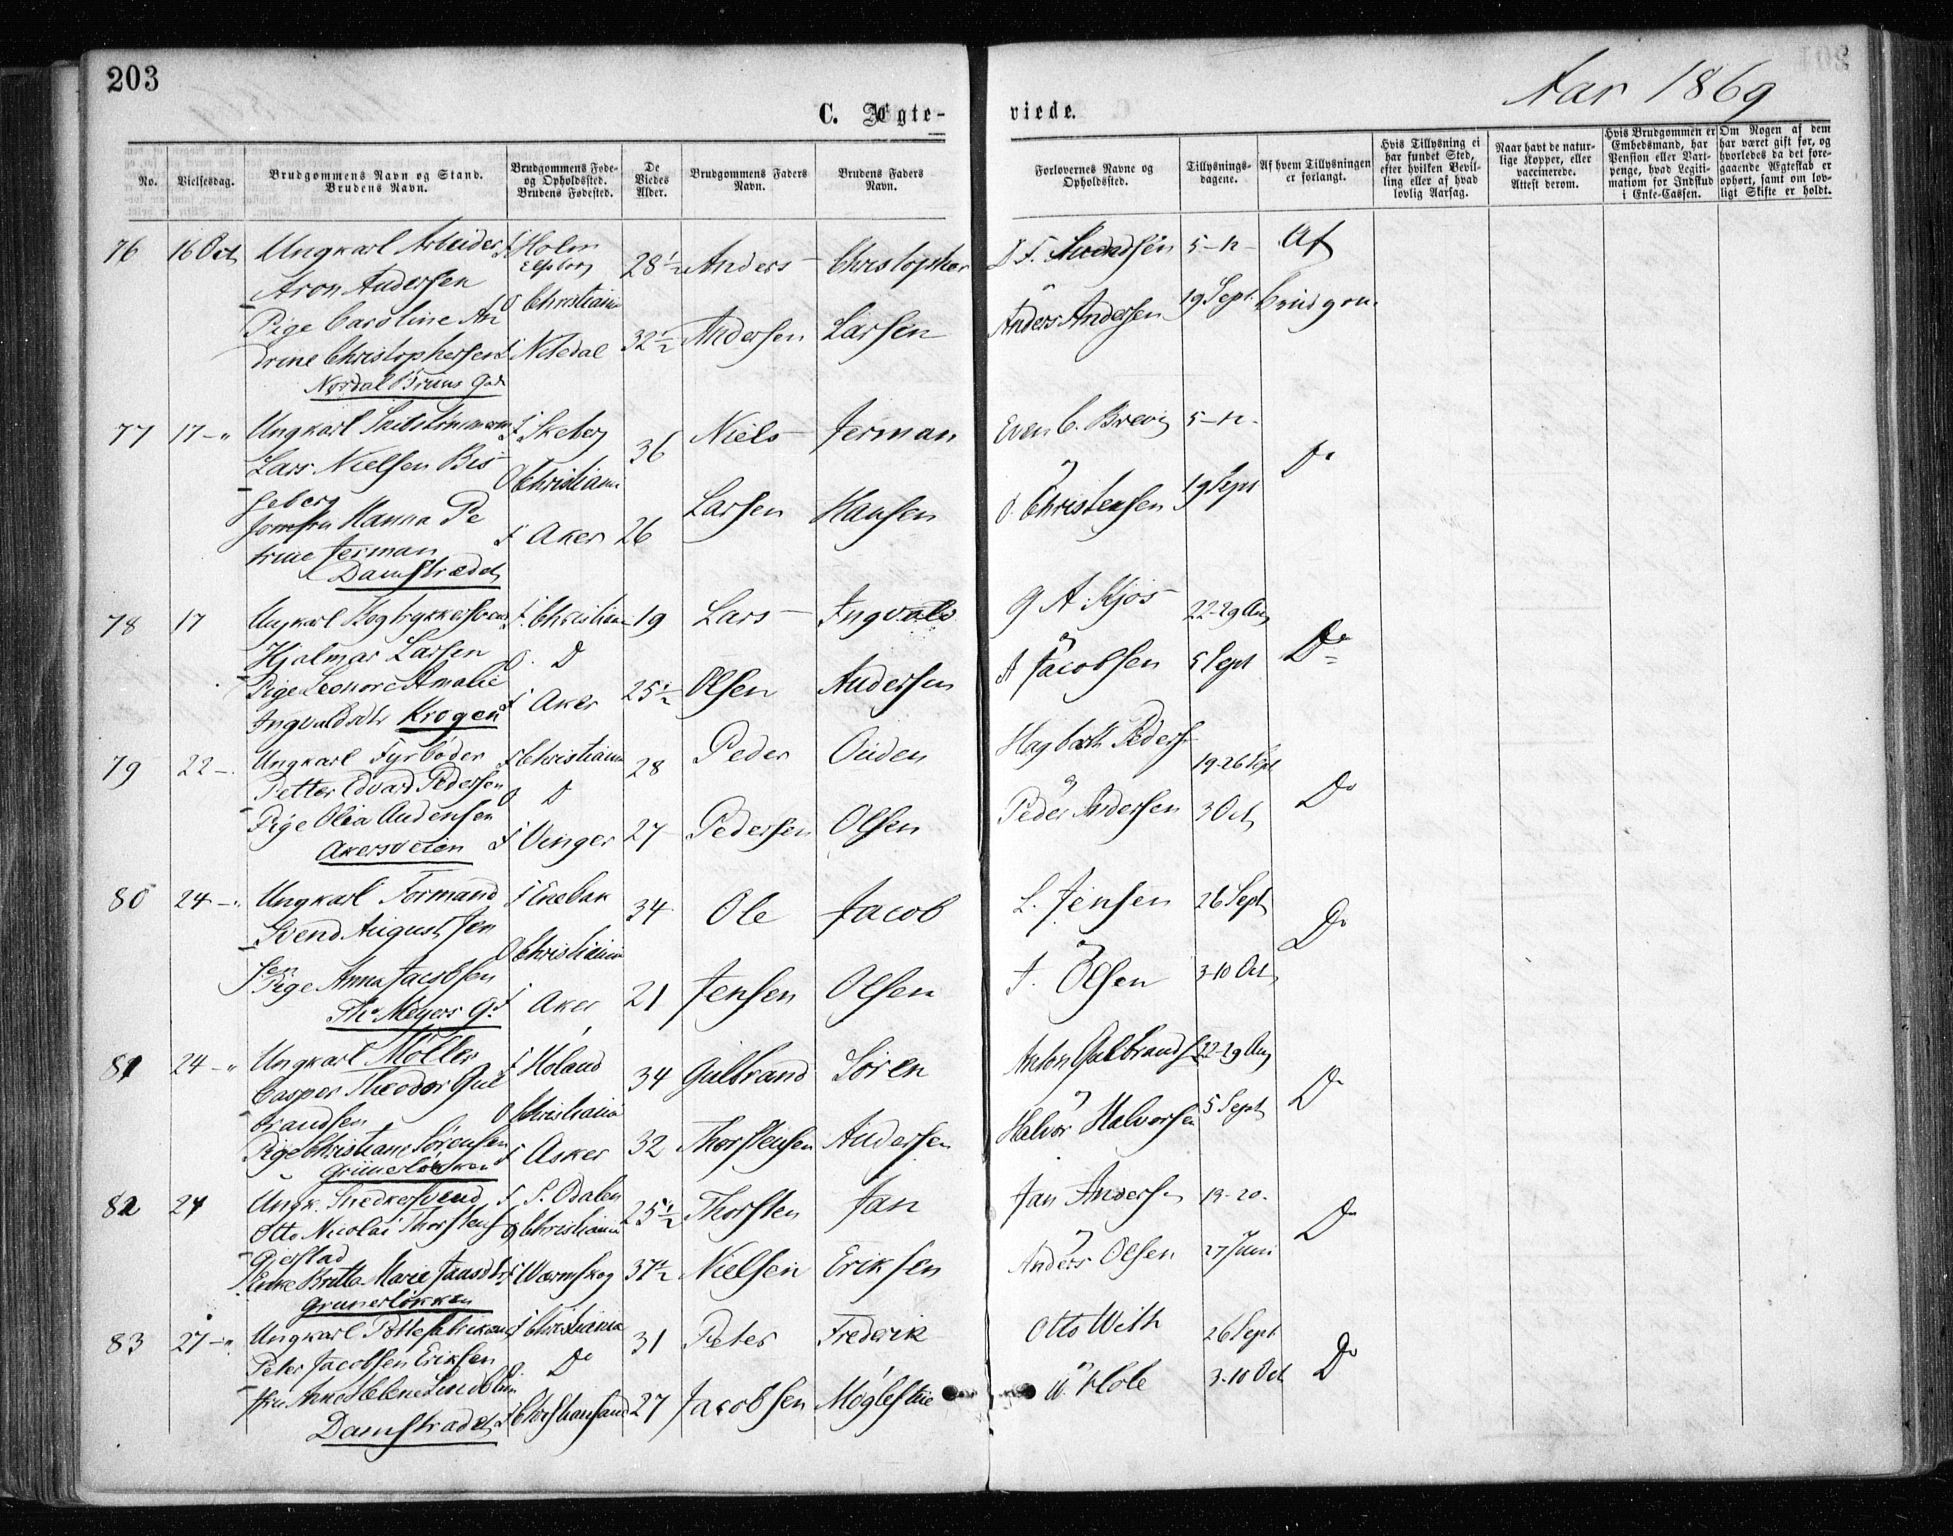 203
Aar 1869
C. Ægte-
viede.
No.
Vielsesdag.
Brudgommens Navn og Stand.
Brudens Navn.
Brudgommens Føde-
og Opholdssted.
Brudens Fødested.
De
Viedes
Alder.
Brudgommens Faders
Navn.
Brudens Faders
Navn.
Forlovernes Navne og
Opholdssted.
Tillysnings-
dagene.
Af hvem Tillysningen
er forlangt.
Hvis Tillysning ei
har fundet Sted,
efter hvilken Bevil-
ling eller af hvad
lovlig Aarsag.
Naar havt de natur-
lige Kopper, eller
vaccinerede.
Attest derom.
Hvis Brudgommen er
Embedsmand, har
Pension eller Vart-
penge, hvad Legiti-
mation for Indskud
i Enke-Cassen.
Om Nogen af dem
har været gift før, og
hvorledes da det fore-
gaaende Ægteskab er
ophørt, samt om lov-
ligt Skifte er holdt.
76 16 Oct Ungkarl Arbeider f Holm 28½ Anders Christopher 5-12- Af
Elfsborg
Aron Andersen
O Christiania og
Pige Caroline An Anders Andersen 19 Sept brudgom.
drine Christophersen f Nitedal 32½ Andersen Larsen
Nordal Bruns Gade
77 17 Ungkarl f Skeberg 36 Niels Jerman Even C. Brevig 5-12-
Lars Nielsen Bis O Christiania og Do
seberg Larsen Hansen O. Christensen 19 Sept
Jomfru Hanna Pe f Aker 26
trine Jerman
Damstrædet
78 17 Ungkarl Bogtrykkersvend f. Christiania 19 Lars Ingvald G A Kjos 22-29 Aug
Hjalmar Larsen O. D og Do
Pige Leonore Amalie f Aker 25½ Olsen Andersen A Jacobsen 5 Sept
Ingvaldsdtr Krogen
79 22 Ungkarl Fyrbøder f Christiania 28 Peder Auden Hagbarth Peders 19-26 Sept
Petter Edvard Pedersen O D og Do
Pige Olea Audensen f Vinger 27 Pedersen Olsen Peder Andersen 3 Oct
Akersveien
80 24 Ungkarl Formand f Enebak 34 Ole Jacob L. Jensen 26 Sept
Svend August Jen O Christiania og Do
sen
Pige Anna Jacobsen f Aker 21 Jensen Olsen J. Olsen 3-10 Oct
Ths Meyers Gd
81 24 Ungkarl Møller f Høland 34 Gulbrand Søren Anton Gulbrands 22-29 Aug
Casper Theodor Gul O Christiania og Do
brandsen Halvor Halvorsen 5 Sept
Pige Christiane Sørensen f Asker 32 Thorstensen Andersen
Grünerløkken
82 24 Ungk. Snedkersvend f S. Odalen 25½ Thorsten Jan Jan Anders 13-20-
Otto Nicolai Thorstens O Christiania og Do
Gjerstad Anders Olsen 27 Juni
Enke Britta Marie Jansdtr f Værmskog 37½ Nielsen Eriksen
Grünerløkken
83 27 Ungkarl Pottefabrikant f Christiania 31 Peter Frederik Otto With 26 Sept
Peter Jacobsen Eriksen O Do og Do
Helene 3-10 Oct
Damstrædet f Christiansand 27 Jacobsen